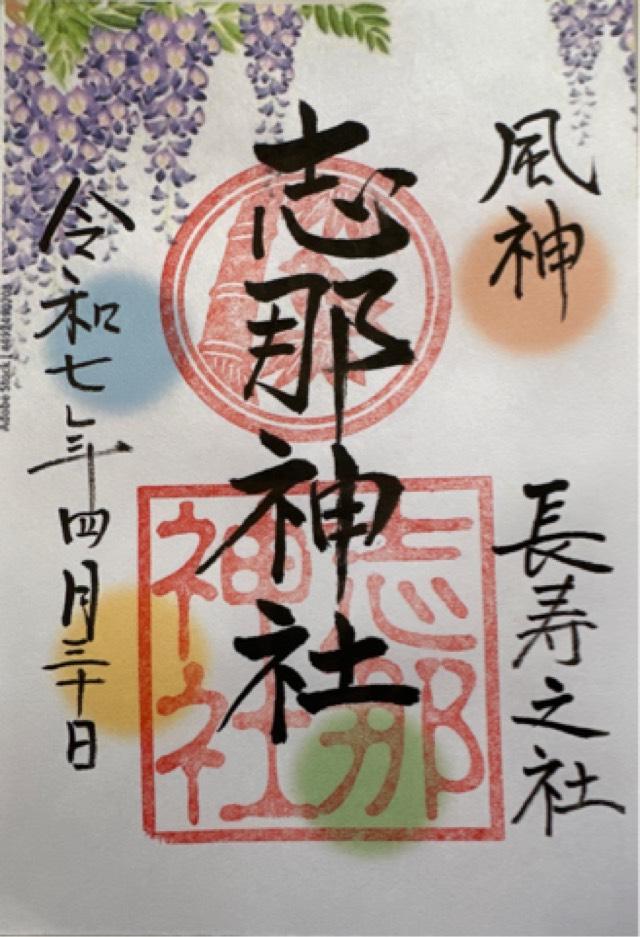 風神
長寿之社
志那神社
志那神社
令和七年四月三十日
Adobe Stock |